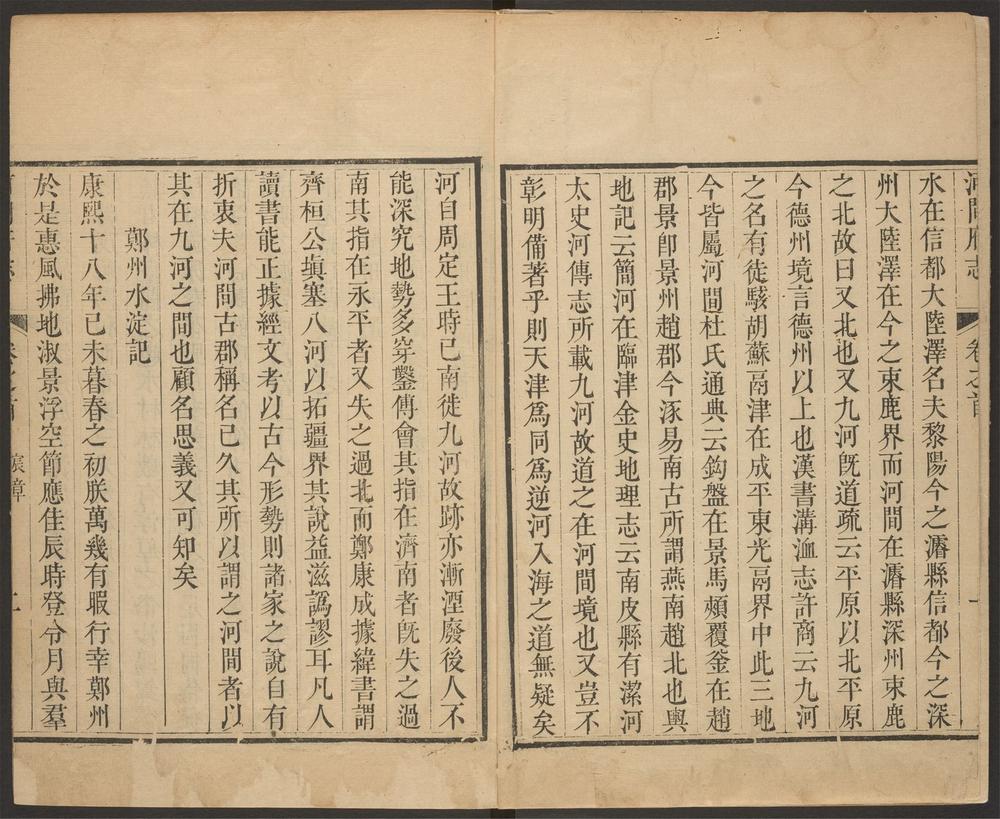 河間府志 卷之首 一
水在信都大陸澤名夫黎陽今之濬縣信都今之深
州大陸澤在今之束鹿界而河間在濬縣深州束鹿
之北故曰又北也又九河旣道疏云平原以北平原
今德州境言德州以上也漢書溝洫志許商云九河
之名有徒駭胡蘇鬲津在成平東光鬲界中此三地
今皆屬河間杜氏通典云鈎盤在景馬頰覆釜在趙
郡景卽景州趙郡今涿易南古所謂燕南趙北也輿
地記云簡河在臨津金史地理志云南皮縣有潔河
太史河傳志所載九河故道之在河間境也又豈不
彰明備著乎則天津爲同爲逆河入海之道無疑矣
河自周定王時已南徙九河故跡亦漸湮廢後人不
能深究地勢多穿鑿傅會其指在濟南者旣失之過
南其指在永平者又失之過北而鄭康成據緯書謂
齊桓公塡塞八河以拓疆界其說益滋譌謬耳凡人
讀書能正據經文考以古今形勢則諸家之說自有
折衷夫河間古郡稱名已久其所以謂之河間者以
其在九河之間也顧名思義又可知矣
鄭州水淀記
康熙十八年己未暮春之初朕萬幾有暇行幸鄭州
於是惠風拂地淑景浮空節應佳辰時登令月與羣
宸章 二